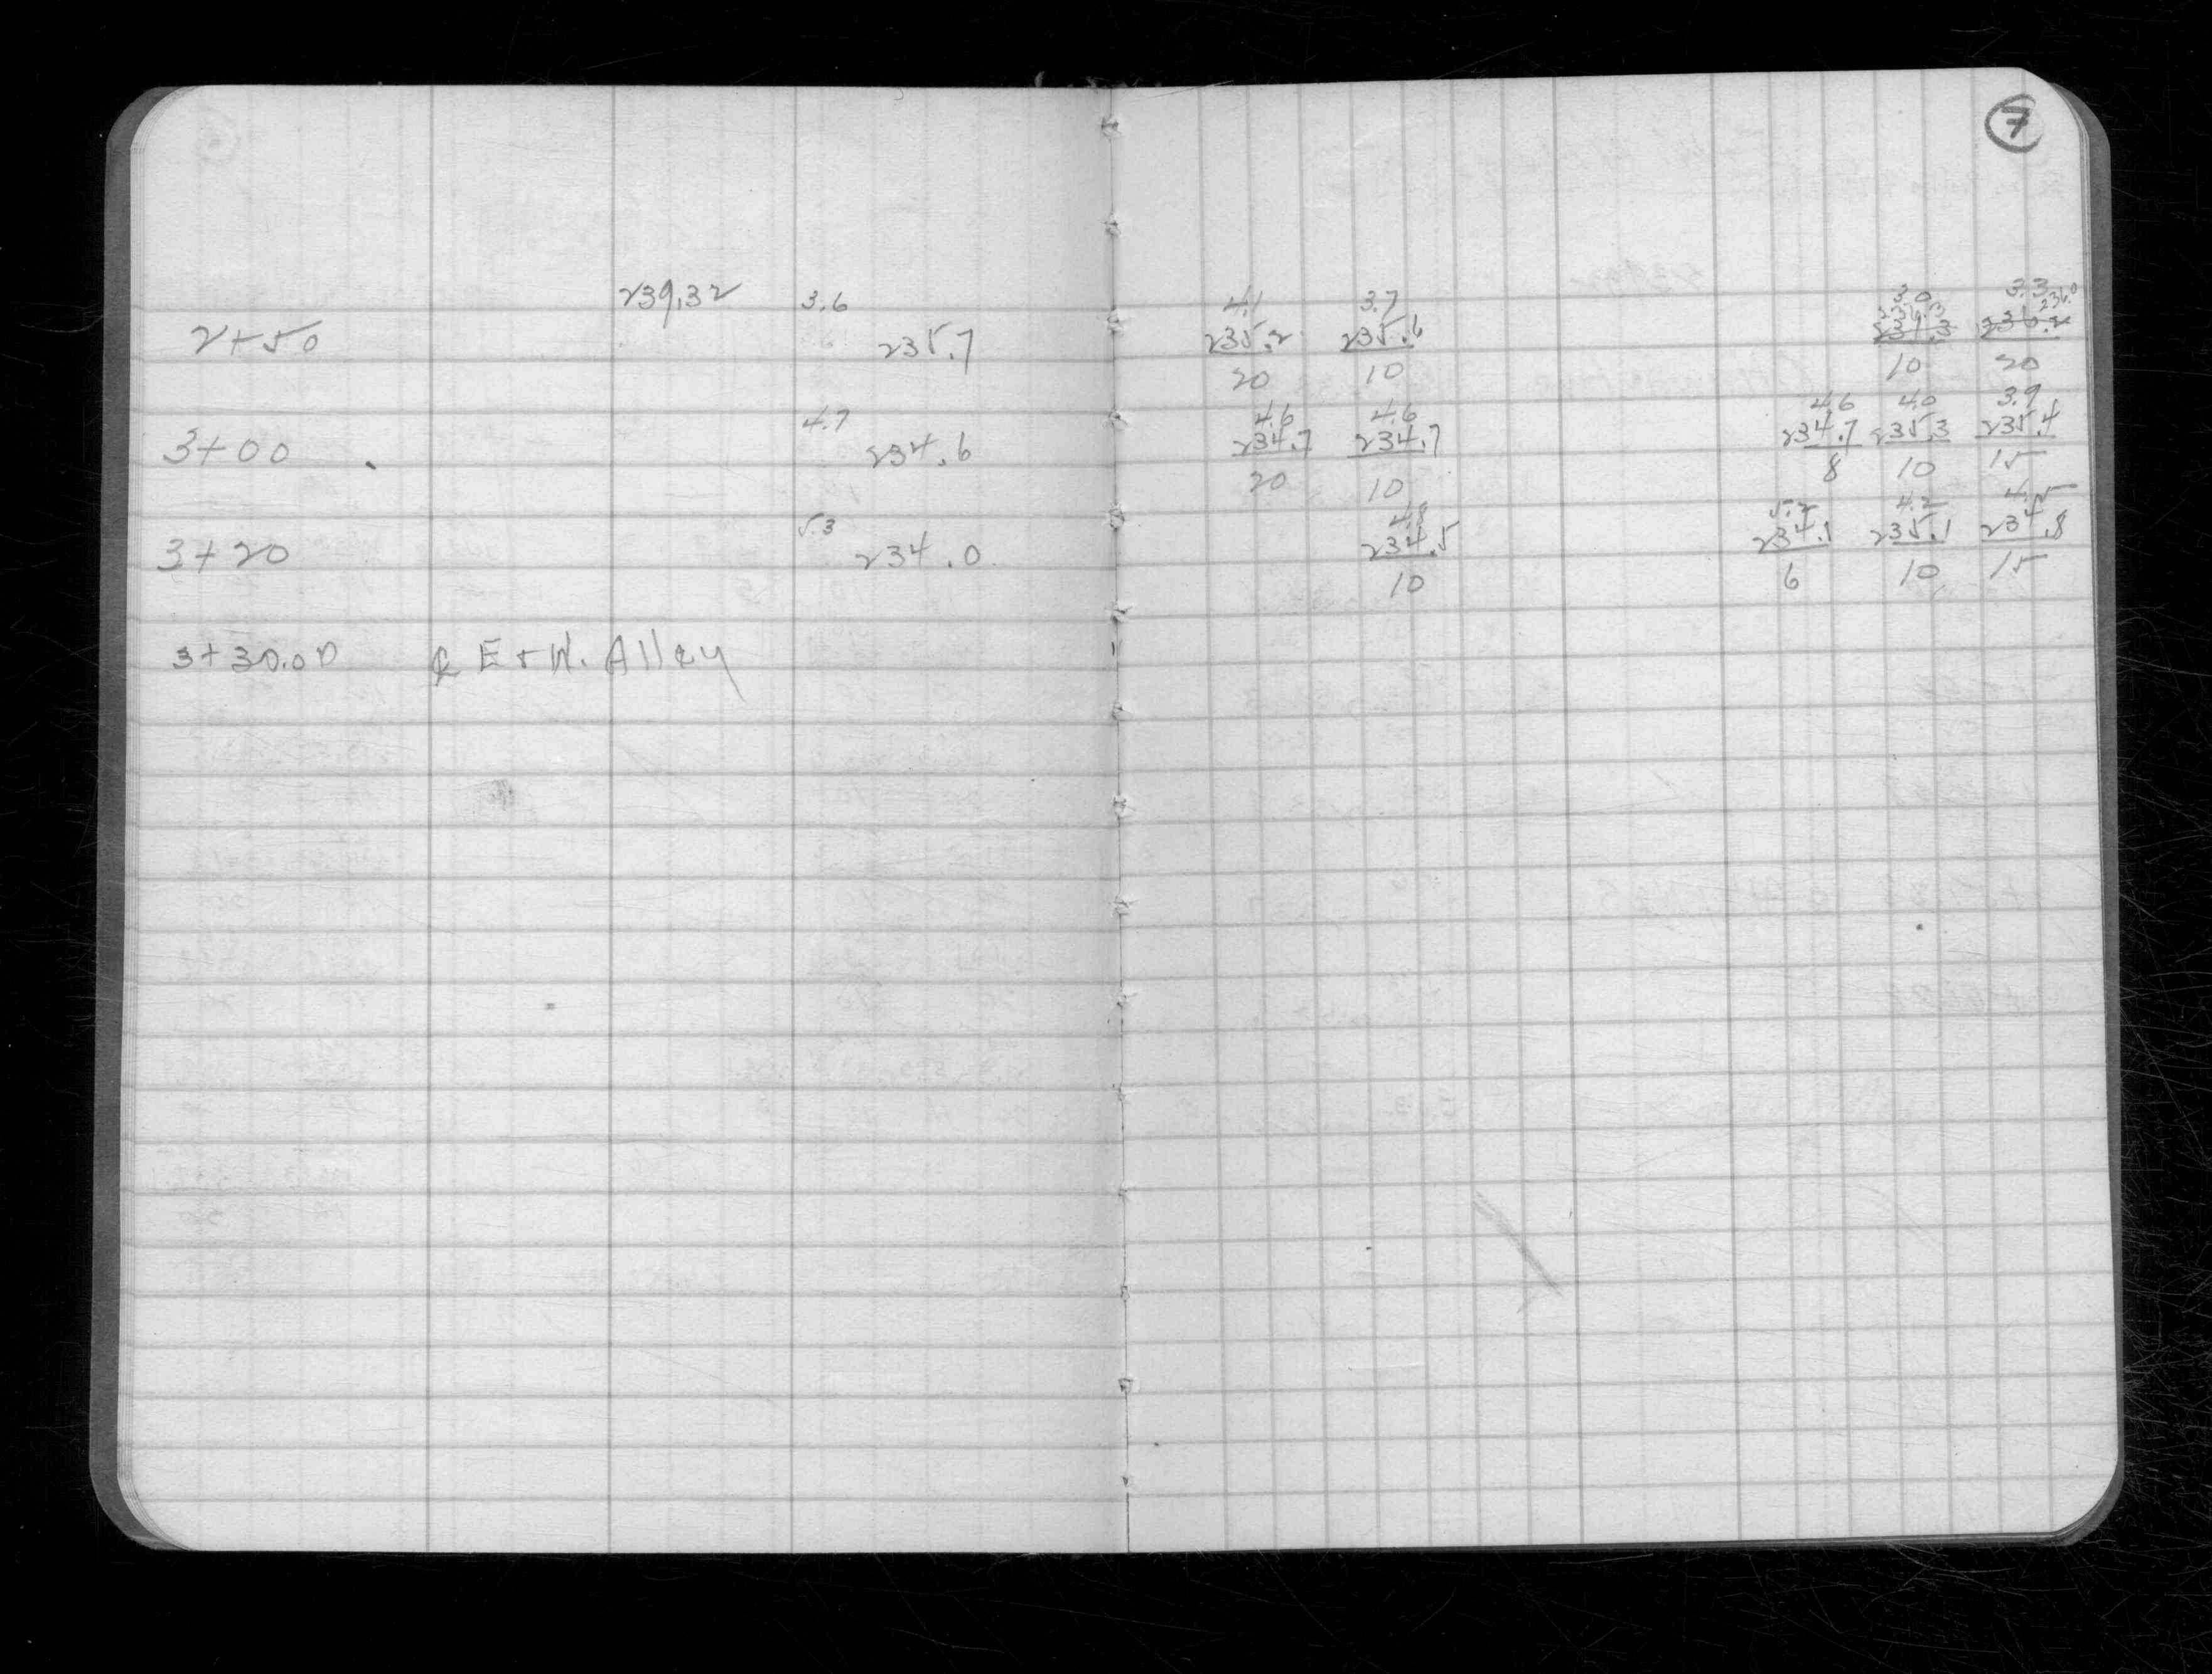 7
239.32 3.6 4.1 3.7 3.0 3.3
236.3 236.0
2+50 235.7 235.2 235.6 237.3 236.2
20 10 10 20
4.7 4.6 4.6 4.6 4.0 3.9
3+00 234.6 234.7 234.7 234.7 235.3 235.4
20 10 8 10 15
5.3 4.8 5.2 4.2 4.5
3+20 234.0 234.5 234.1 235.1 234.8
10 6 10 15
3+30.00 ℄ E & W. Alley